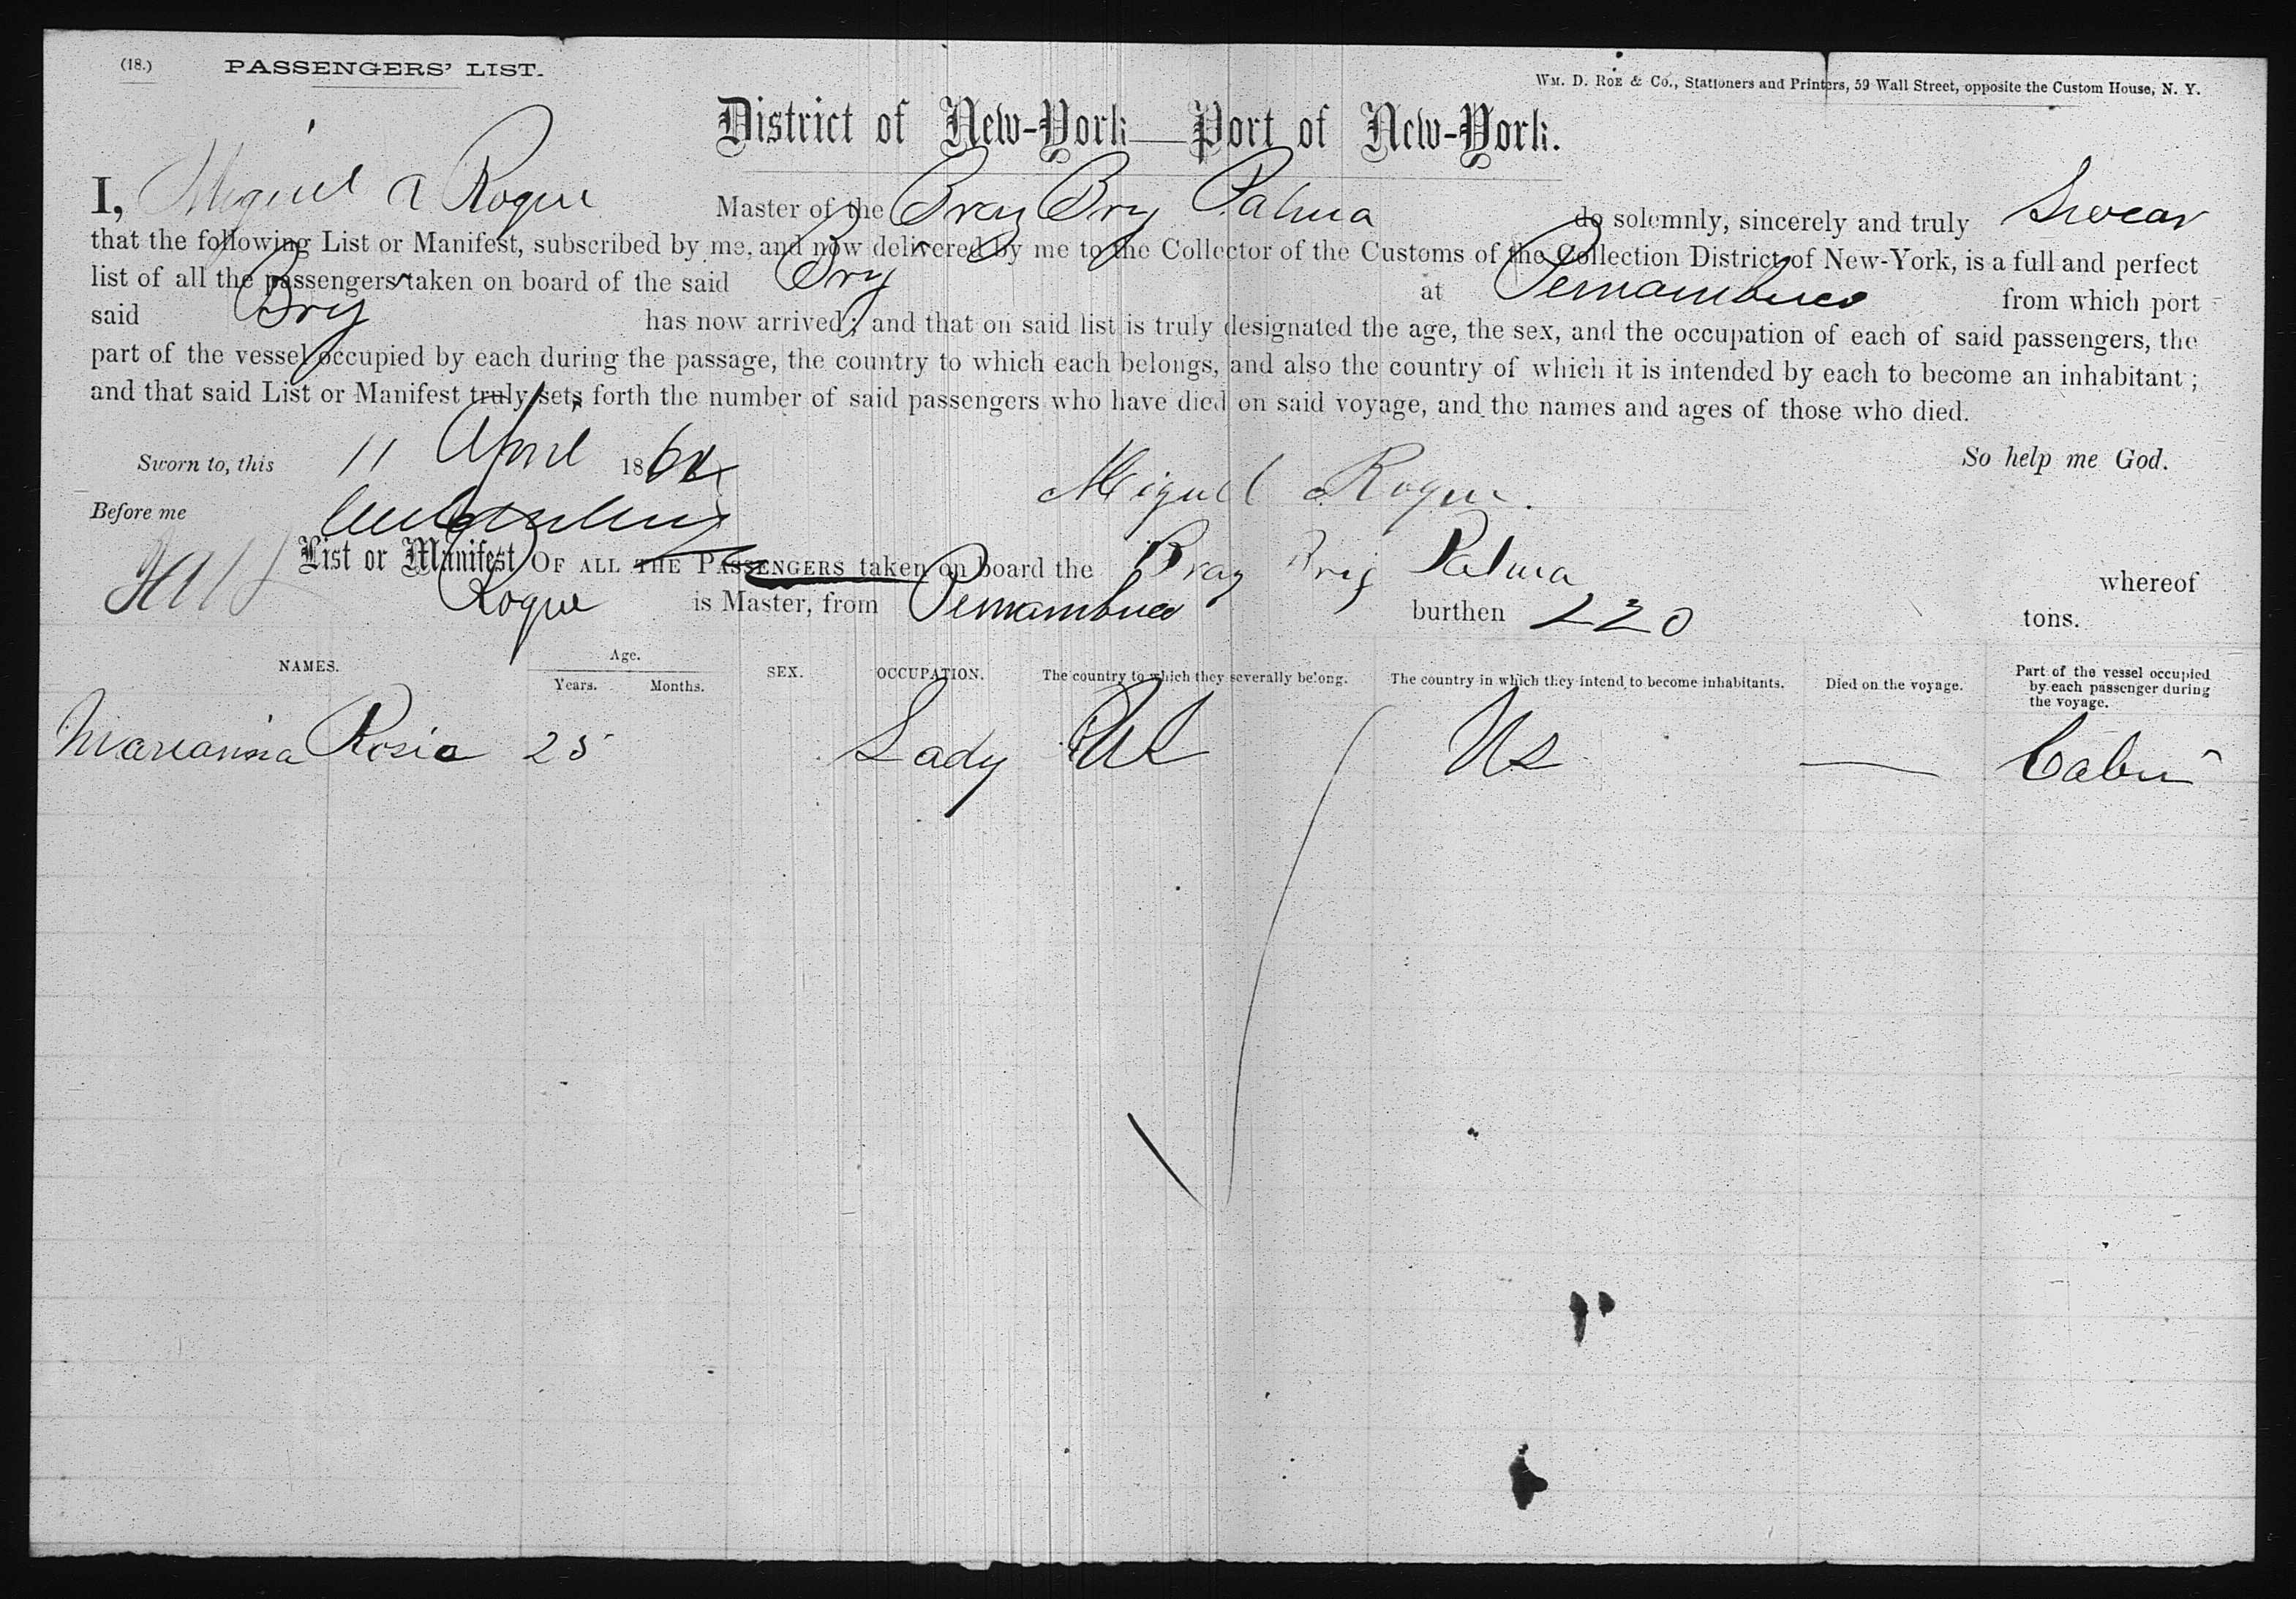 (18.) PASSENGERS' LIST.
WM. D. ROE & CO., Stationers and Printers, 59 Wall Street, opposite the Custom House, N. Y.
District of New-York—Port of New-York.
I, Miguel A Roque Master of the Braz Brig Palma do solemnly, sincerely and truly Swear
that the following List or Manifest, subscribed by me, and now delivered by me to the Collector of the Customs of the Collection District of New-York, is a full and perfect
list of all the passengers taken on board of the said Brig at Pernambuco from which port
said Brig has now arrived; and that on said list is truly designated the age, the sex, and the occupation of each of said passengers, the
part of the vessel occupied by each during the passage, the country to which each belongs, and also the country of which it is intended by each to become an inhabitant;
and that said List or Manifest truly sets forth the number of said passengers who have died on said voyage, and the names and ages of those who died.
So help me God.
Sworn to, this 11 April 1864 Miguel A Roque.
Before me
List or Manifest OF ALL THE PASSENGERS taken on board the Braz Brig Palma whereof
Roque is Master, from Pernambuco burthen 220 tons.
NAMES. Age. Years. Months. SEX. OCCUPATION. The country to which they severally belong. The country in which they intend to become inhabitants. Died on the voyage. Part of the vessel occupied by each passenger during the voyage.
Marianna Rosia 25 Lady US US — Cabin